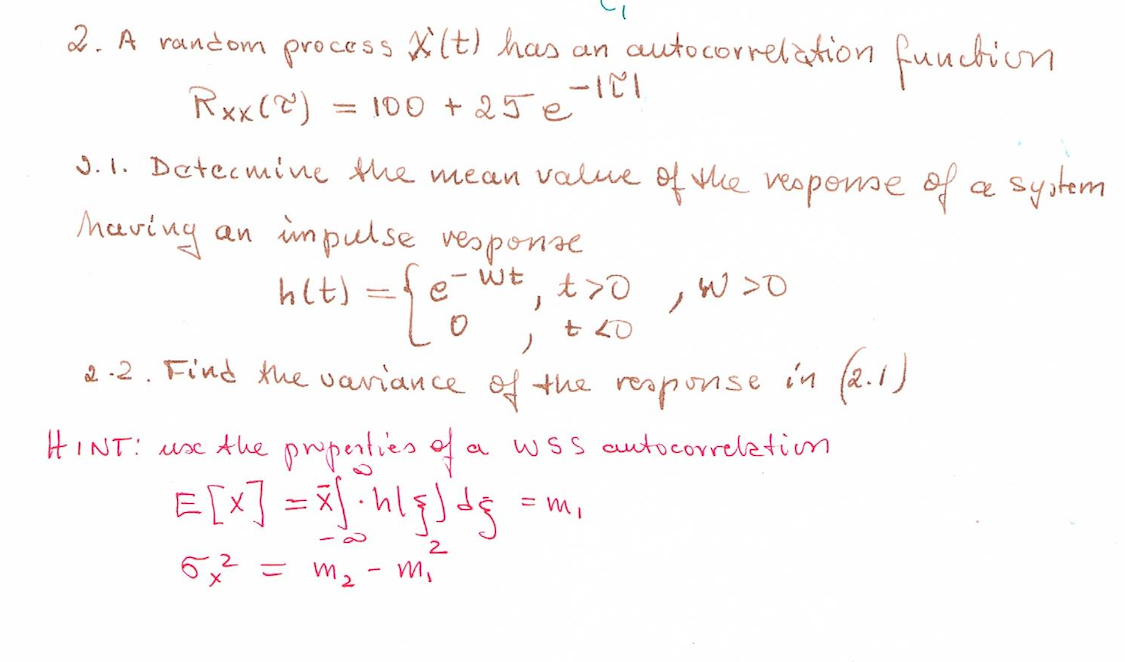 2. A random process X(t) has an autocorrelation function
Rxx(τ) = 100 + 25 e^-|τ|
2.1. Determine the mean value of the response of a system
having an impulse response
h(t) = { e^-Wt, t>0 , W>0
0 , t<0
2.2. Find the variance of the response in (2.1)
HINT: use the properties of a WSS autocorrelation
E[X] = x̄ ∫_-∞^∞ · h(ξ) dξ = m₁
σx² = m₂ - m₁²